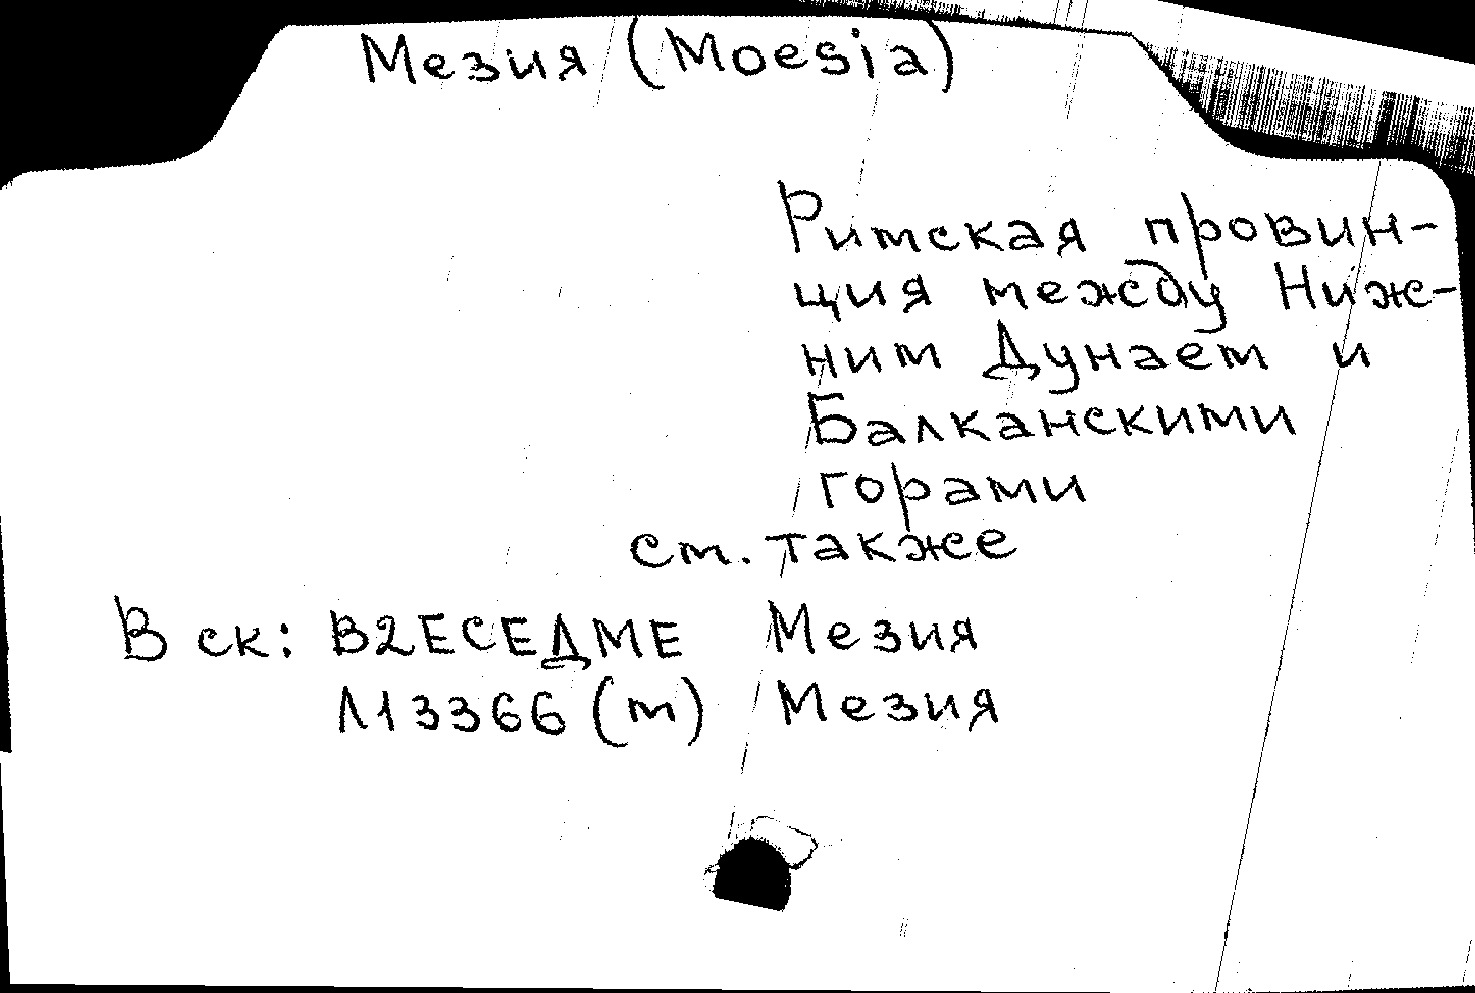 Мезия (Moesia)
Римская провин-
ция между Ниж-
ним Дунаем и
Балканскими
горами
см. также
В ск: В2ЕСЕДМЕ Мезия
Л13366 (т) Мезия